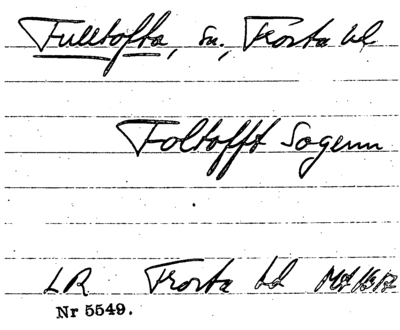 Fulltofta, sn., Frosta hd.
Foltofft Sogenn
LR Frosta hd
Nr 5549.